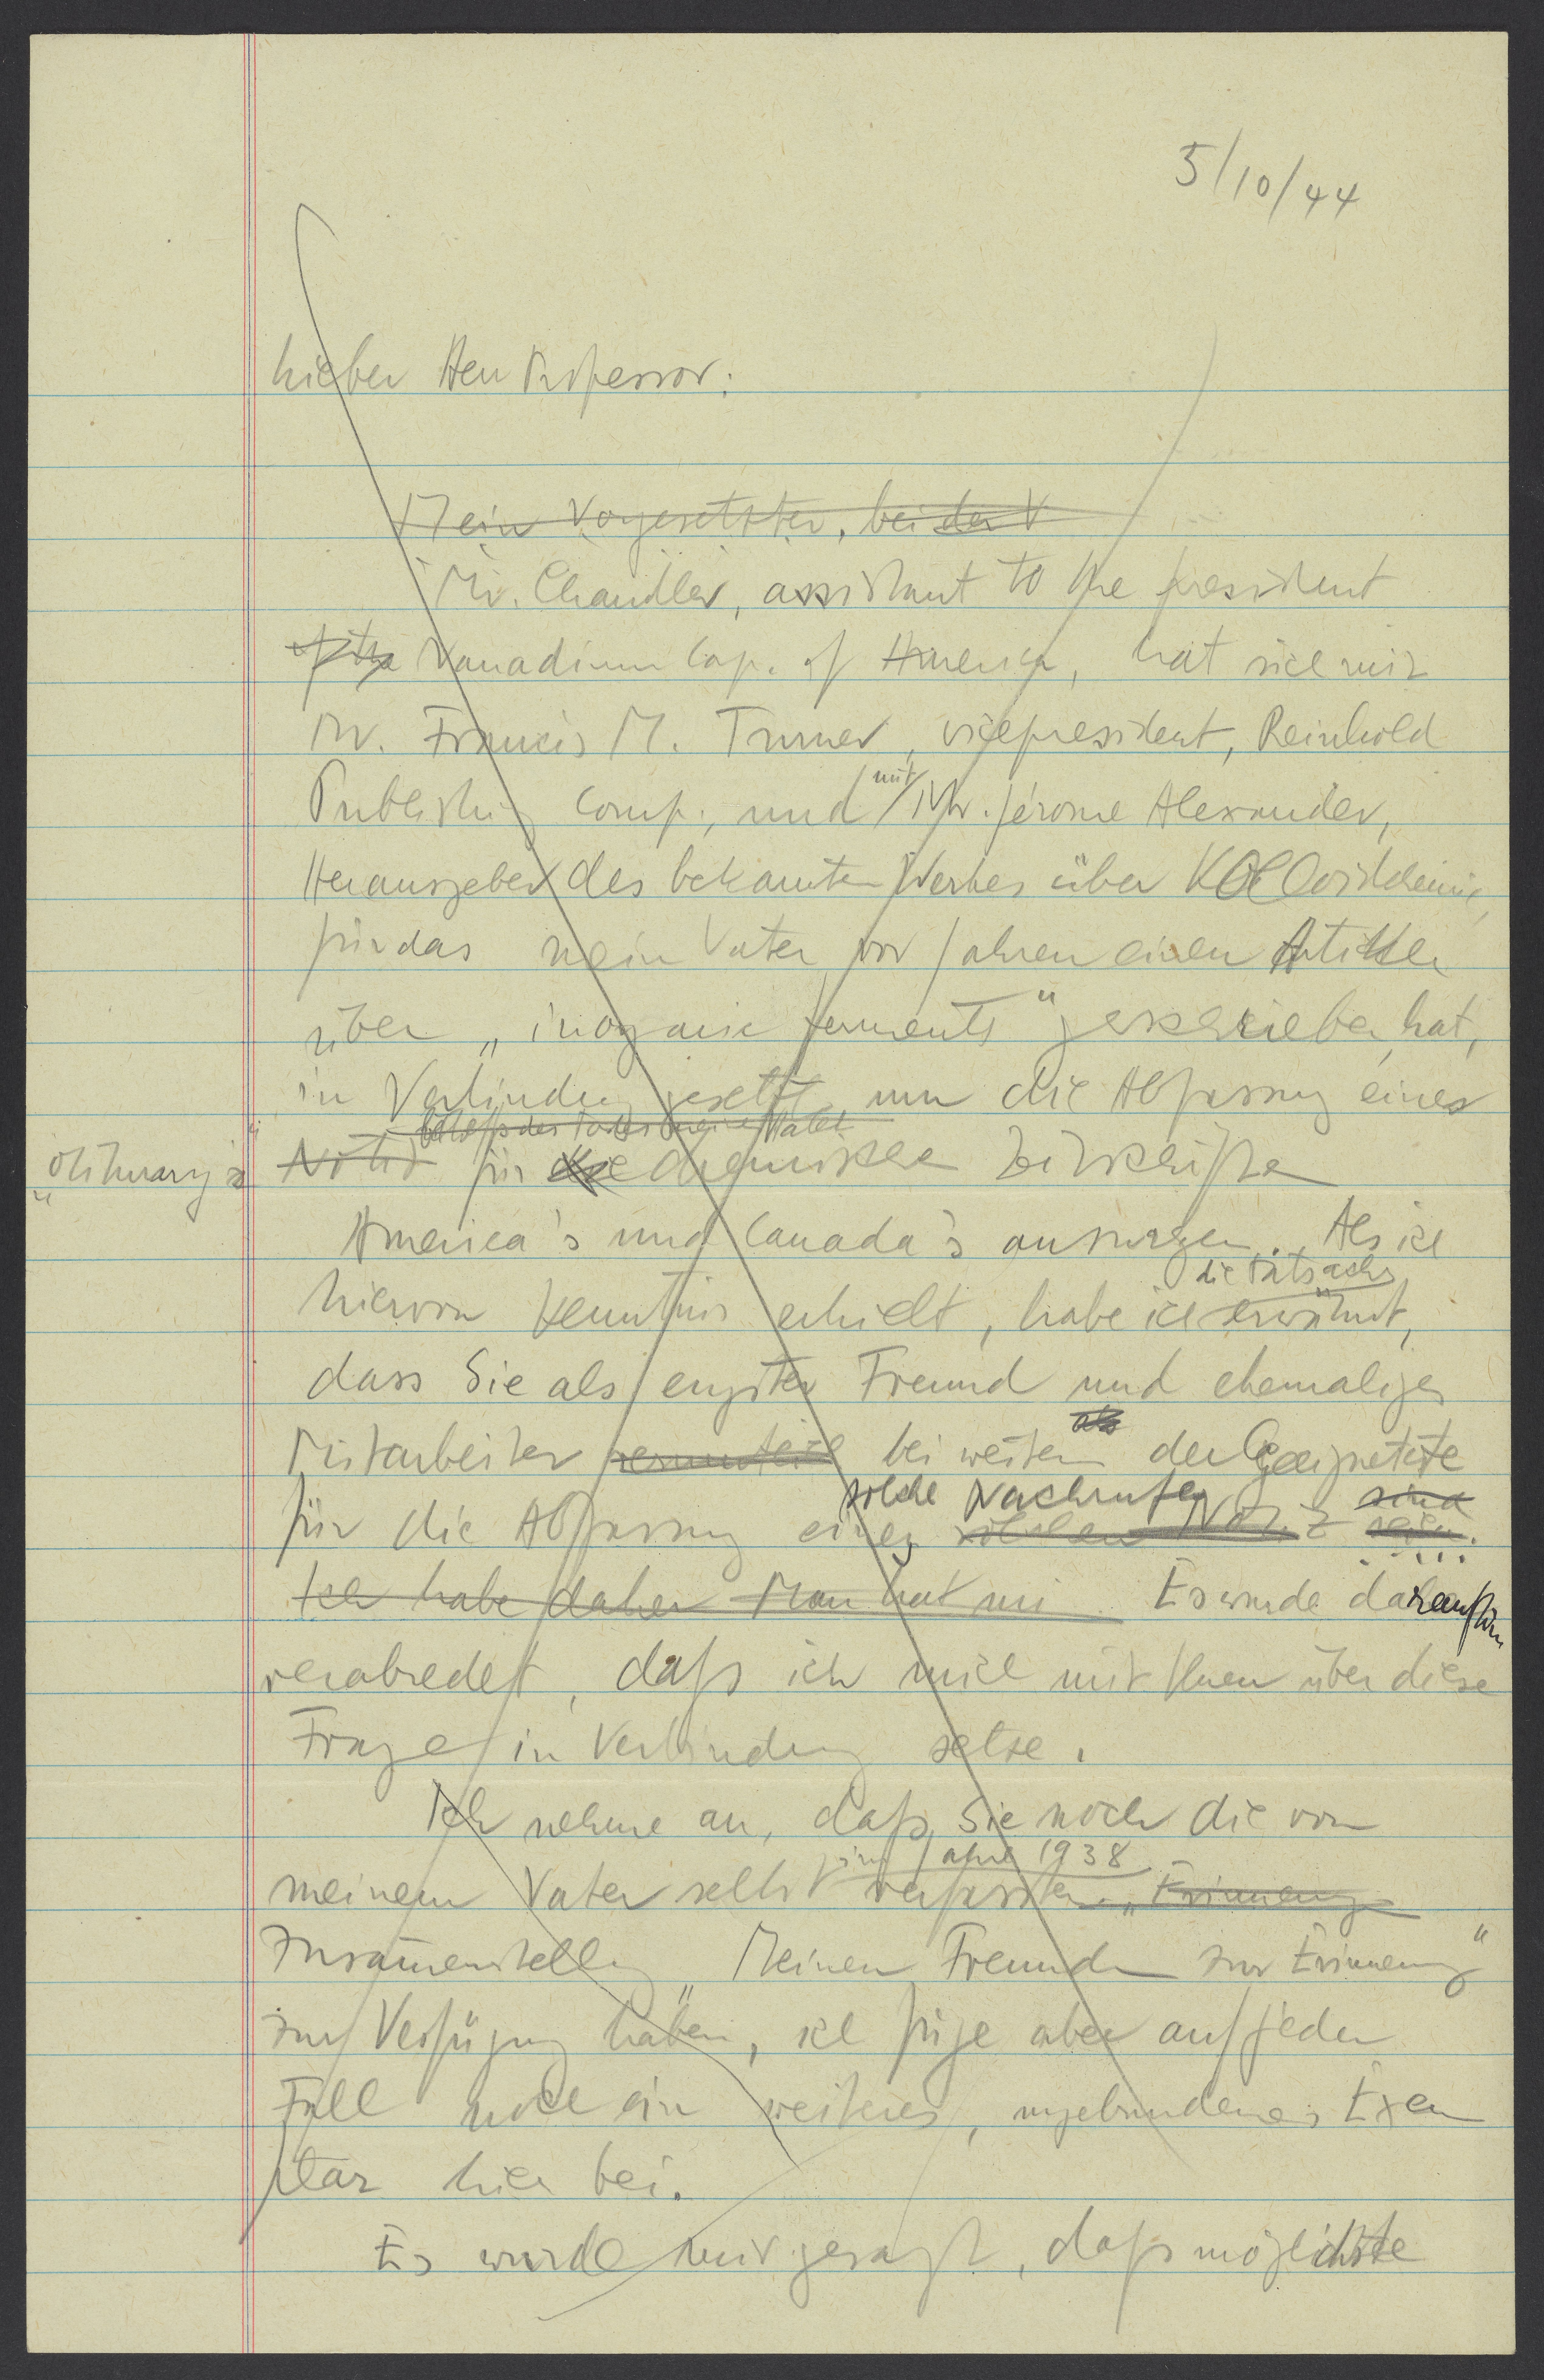 5/10/44
Lieber Herr Professor:
Mein Vorgesetzter, bei der V
Mr. Chandler, assistant to the president
of the Vanadium Corp. of America, hat sich mit
Mr. Francis M. Turner, vicepresident, Reinhold
Publishing Comp., und mit Mr. Jerome Alexander,
Herausgeber des bekannten Werkes über Kolloidchemie,
für das mein Vater vor Jahren einen Artikel
über „inorganic ferments" geschrieben hat,
in Verbindung gesetzt, um die Abfassung eines
betreffs des Todes meines Vaters
„obituary's" Notiz für die chemischen Zeitschriften
America's und Canada's anzuregen. Als ich
die Tatsache
hiervon Kenntnis erhielt, habe ich erwähnt,
dass Sie als engster Freund und ehemaliger
Mitarbeiter bei weitem als der Geeignetste
solche Nachrufe sind
für die Abfassung einer solchen Notiz seien.
Ich habe daher Man hat mi Es wurde daraufhin
verabredet, daß ich mich mit Ihnen über diese
Frage in Verbindung setze.
Ich nehme an, daß Sie noch die von
im Jahre 1938
meinem Vater selbst verfasste „Erinnerung
Zusammenstellung „Meinen Freunden zur Erinnerung"
zur Verfügung haben, ich füge aber auf jeden
Fall noch ein weiteres, ungebundenes Exem
plar hier bei.
Es wurde mir gesagt, daß möglichste